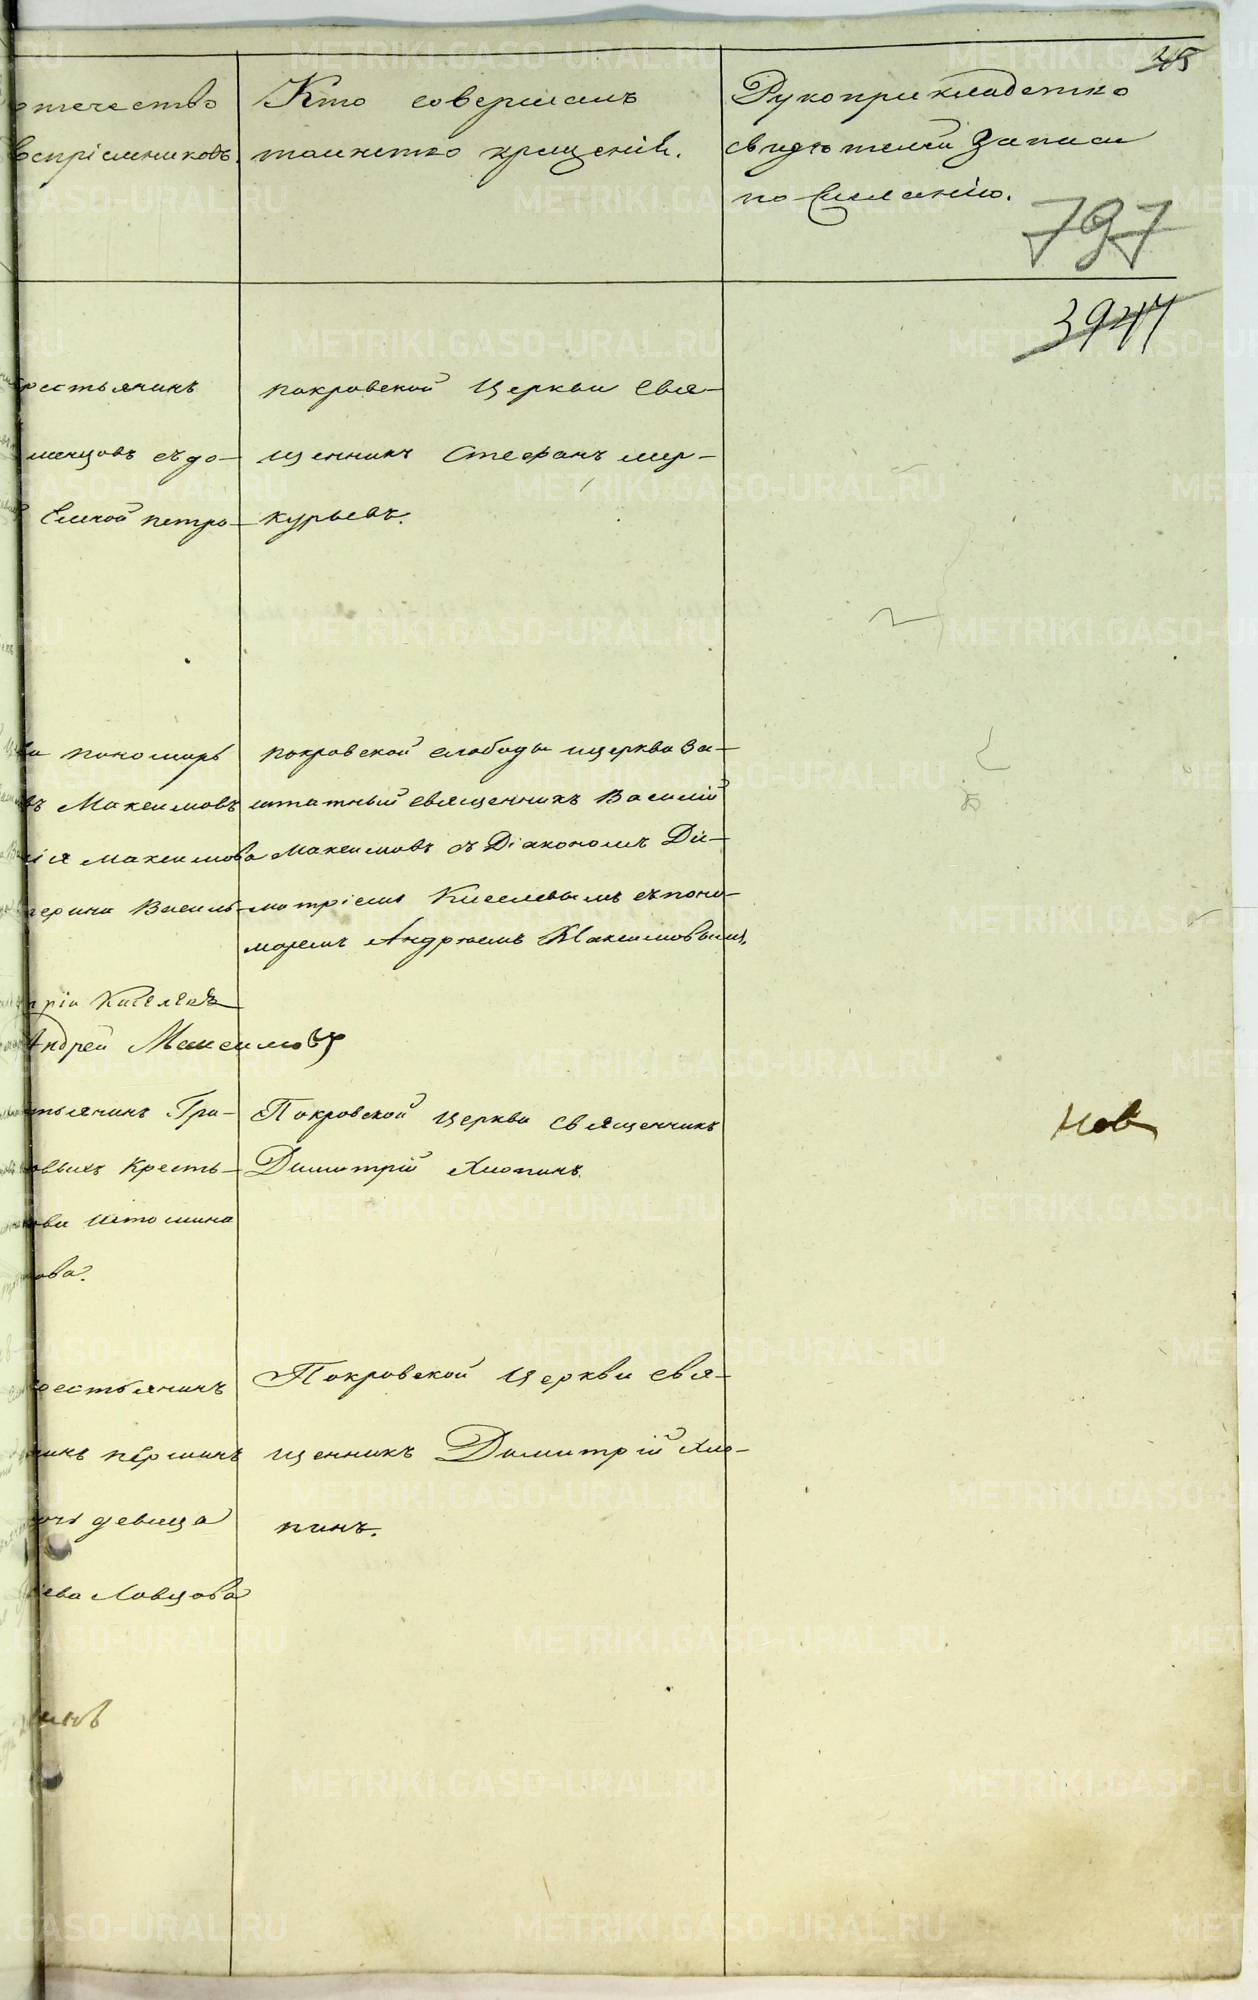 45
отечество
воспріемниковъ.
Кто совершалъ
таинство крещенія.
Рукоприкладство
свидѣтелей записи
по желанію.
797
3947
крестьянинъ
менцовъ съ до-
Еликой петро-
покровской Церкви Свя-
щенникъ Стефанъ мер-
курьевъ.
пономарь
въ Максимовъ
максимова
Василь-
покровской слободы церкви За-
штатный священникъ Василій
Максимовъ съ Діакономъ Ди-
митріемъ Киселевымъ съ поно-
маремъ Андреемъ Максимовымъ.
трій Киселевъ
Андрей Максимовъ
стьянинъ Гри-
овыхъ Кресть-
Истомина
ова.
Покровской церкви священникъ
Димитрій Хлопинъ.
Нов
крестьянинъ
першинъ
дочь девица
ева Ловцова
Покровской Церкви свя-
щенникъ Димитрій Хло-
пинъ.
METRIKI.GASO-URAL.RU